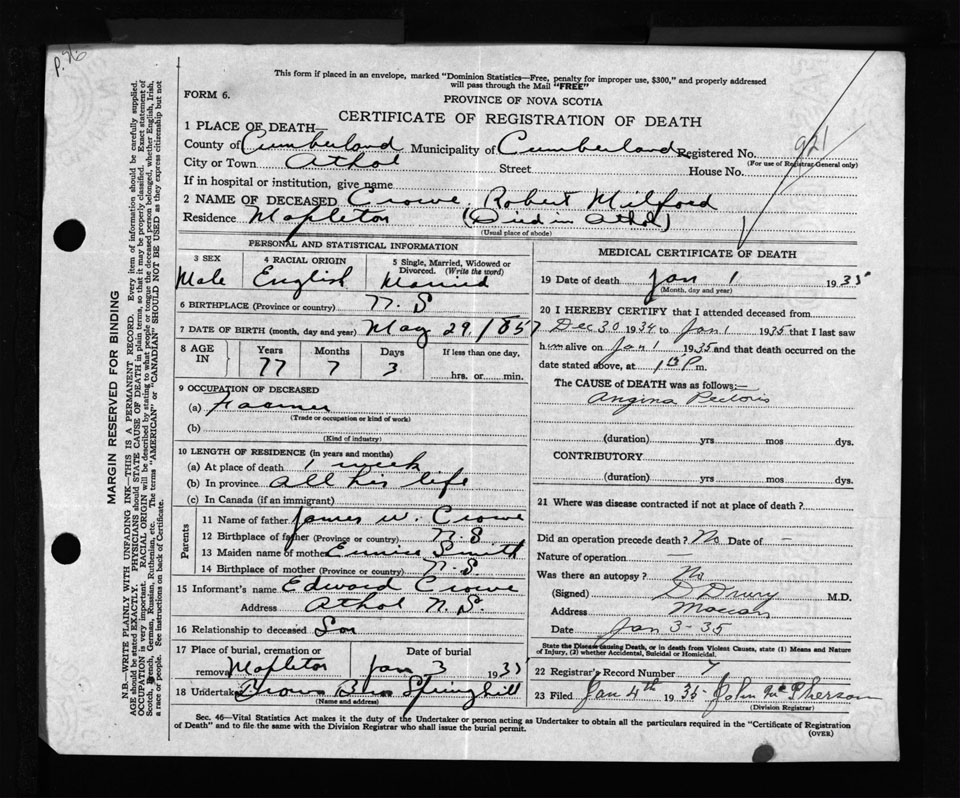 P.76
This form if placed in an envelope, marked "Dominion Statistics—Free, penalty for improper use, $300," and properly addressed
will pass through the Mail "FREE"
FORM 6.
PROVINCE OF NOVA SCOTIA
CERTIFICATE OF REGISTRATION OF DEATH
1 PLACE OF DEATH—
County of Cumberland Municipality of Cumberland Registered No. 921
(For use of Registrar General only)
City or Town Athol Street House No.
If in hospital or institution, give name
2 NAME OF DECEASED Crowe, Robert Milford
Residence Mapleton (Died in Athol)
(Usual place of abode)
PERSONAL AND STATISTICAL INFORMATION
3 SEX 4 RACIAL ORIGIN 5 Single, Married, Widowed or
Divorced. (Write the word)
Male English Married
6 BIRTHPLACE (Province or country) N. S
7 DATE OF BIRTH (month, day and year) May 29, 1857
8 AGE IN Years Months Days If less than one day,
77 7 3 hrs. or min.
9 OCCUPATION OF DECEASED
(a) Farmer
(Trade or occupation or kind of work)
(b)
(Kind of industry)
10 LENGTH OF RESIDENCE (in years and months)
(a) At place of death 1 week
(b) In province all his life
(c) In Canada (if an immigrant)
Parents
11 Name of father James W. Crowe
12 Birthplace of father (Province or country) N. S
13 Maiden name of mother Eunice Smith
14 Birthplace of mother (Province or country) N. S
15 Informant's name Edward Crowe
Address Athol N. S.
16 Relationship to deceased Son
17 Place of burial, cremation or removal Date of burial
Mapleton Jan 3 1935
18 Undertaker Brown Bros Springhill
(Name and address)
MEDICAL CERTIFICATE OF DEATH
19 Date of death Jan 1 1935
(Month, day and year)
20 I HEREBY CERTIFY that I attended deceased from
Dec 30 1934 to Jan 1 1935 that I last saw
him alive on Jan 1 1935 and that death occurred on the
date stated above, at P m.
The CAUSE of DEATH was as follows:—
Angina Pectoris
(duration) yrs mos dys.
CONTRIBUTORY
(duration) yrs mos dys.
21 Where was disease contracted if not at place of death?
Did an operation precede death? No Date of —
Nature of operation —
Was there an autopsy? No
(Signed) D Drury M.D.
Address Maccan
Date Jan 3 - 35
State the Disease causing Death, or in death from Violent Causes, state (1) Means and Nature
of Injury, (2) whether Accidental, Suicidal or Homicidal.
22 Registrar's Record Number 7
23 Filed Jan 4th 1935 John McPherson
(Division Registrar)
Sec. 46—Vital Statistics Act makes it the duty of the Undertaker or person acting as Undertaker to obtain all the particulars required in the "Certificate of Registration
of Death" and to file the same with the Division Registrar who shall issue the burial permit.
(OVER)
MARGIN RESERVED FOR BINDING
N.B.—WRITE PLAINLY WITH UNFADING INK—THIS IS A PERMANENT RECORD. Every item of information should be carefully supplied.
AGE should be stated EXACTLY. PHYSICIANS should STATE CAUSE OF DEATH in plain terms, so that it may be properly classified. Exact statement of
OCCUPATION is very important. RACIAL ORIGIN will be described by stating to what people or tongue the deceased person belonged, whether English, Irish,
Scotch, French, German, Russian, Ruthenian, etc. The terms "AMERICAN" or "CANADIAN" SHOULD NOT BE USED as they express citizenship but not
a race or people. See instructions on back of Certificate.